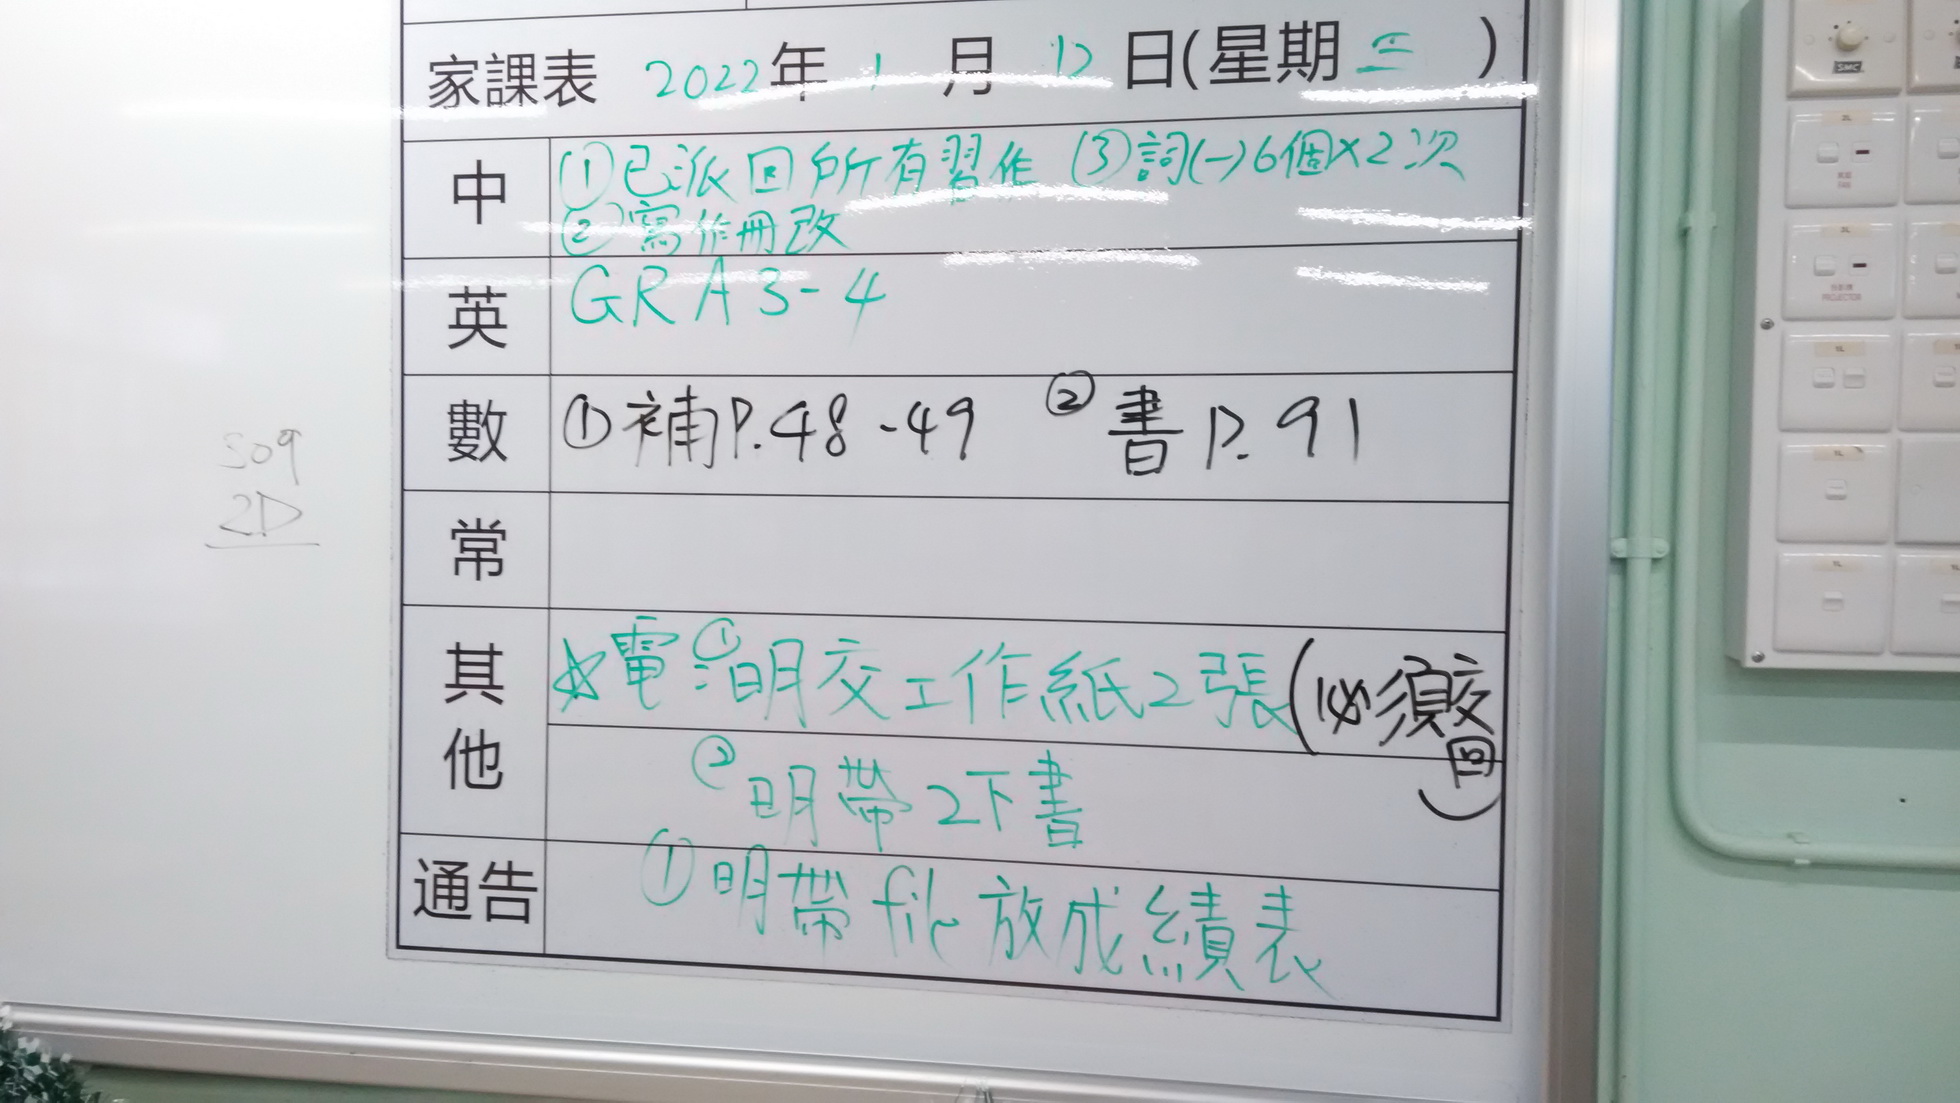 家課表 2022年 1 月 12 日(星期 三 )
中 ①已派回所有習作 ③詞(一)6個×2次
②寫作冊改
英 GRA 3-4
數 ①補P.48-49 ②書P.91
常
其他 ☆電①:明交工作紙2張(必須交回)
②明帶2下書
通告 ①明帶file放成績表
509
2D
SMC
PROJECTOR